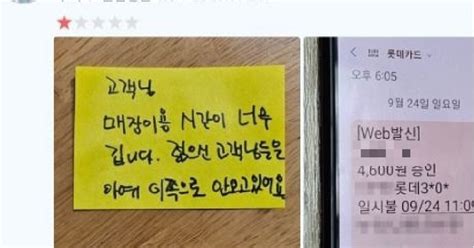 고객님
매장이용 시간이 너무
깁니다. 젊으신 고객님들은
아예 이쪽으로 안오고있어요
롯데카드
오후 6:05
9월 24일 일요일
[Web발신]
4,600원 승인
롯데3*0*
일시불 09/24 11:0